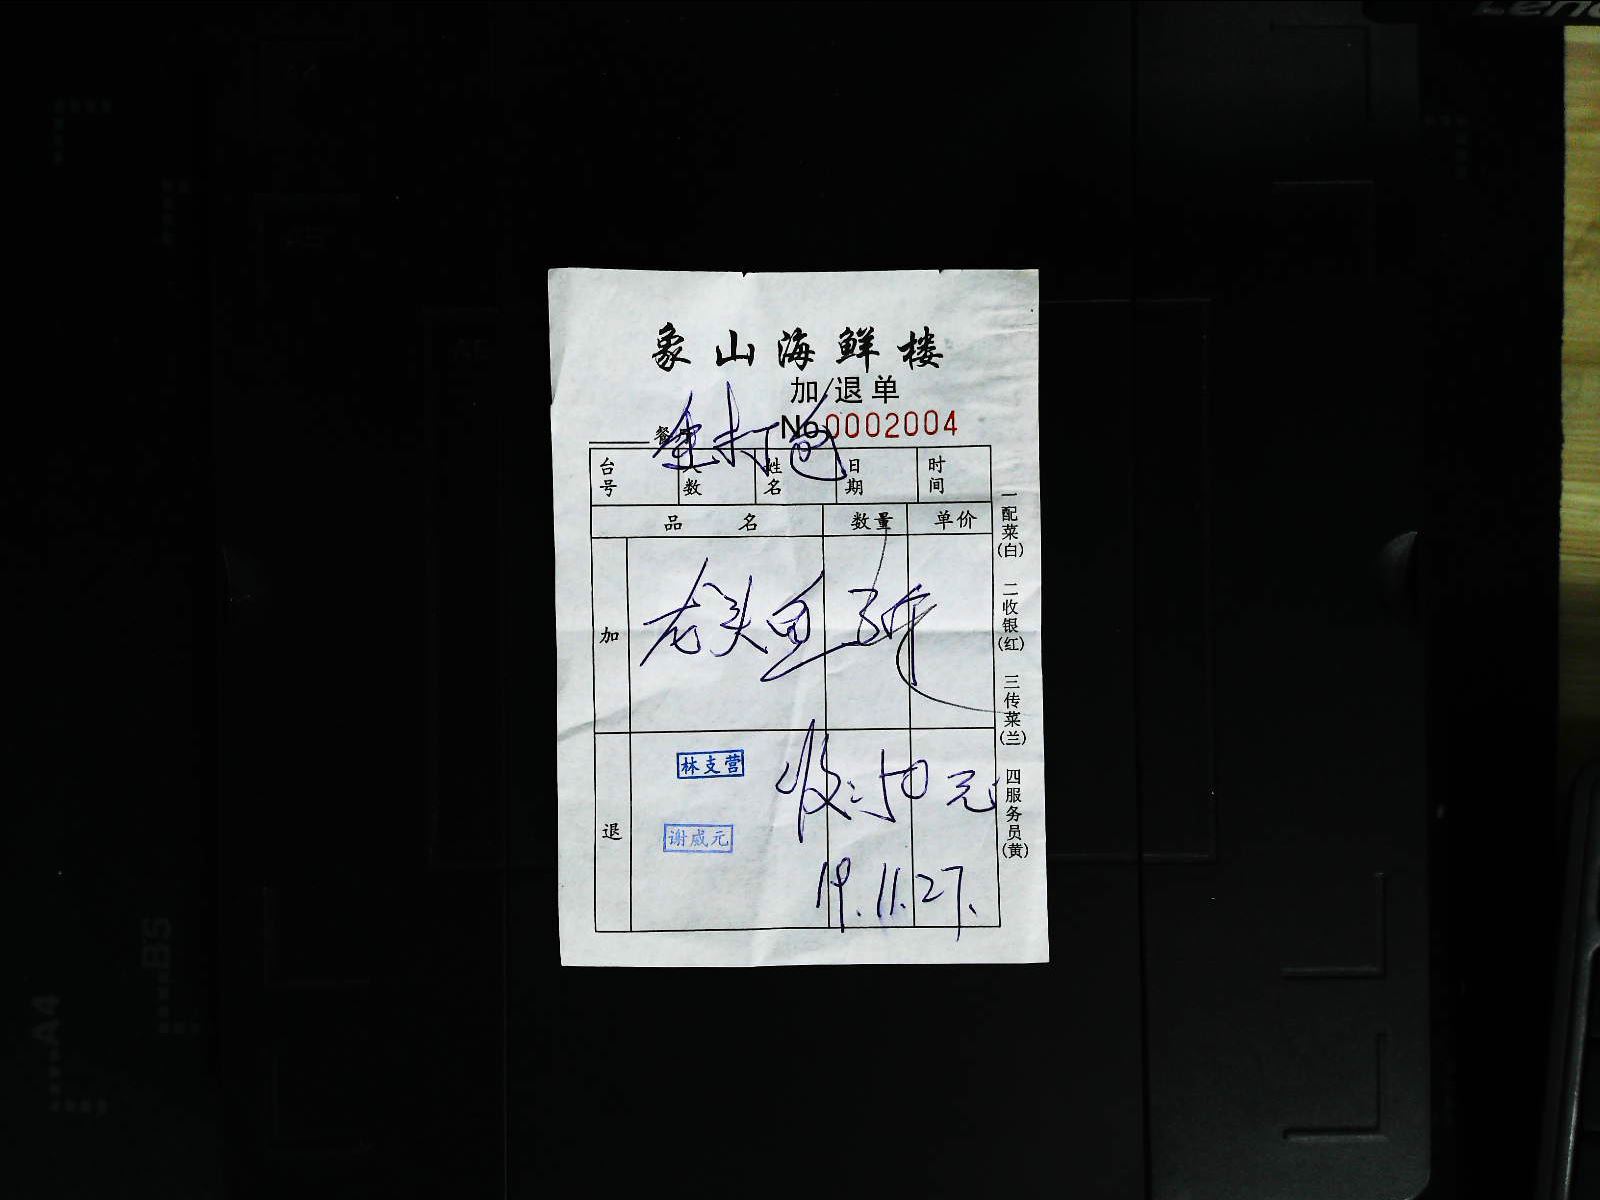 Leno
象山海鲜楼
加/退单
No 0002004
餐厅
打包
台号 人数 姓名 日期 时间
品名 数量 单价
加
龙头鱼 3斤
退
林支营
收:150元
谢威元
19.11.27.
一配菜(白) 二收银(红) 三传菜(兰) 四服务员(黄)
A4
B5